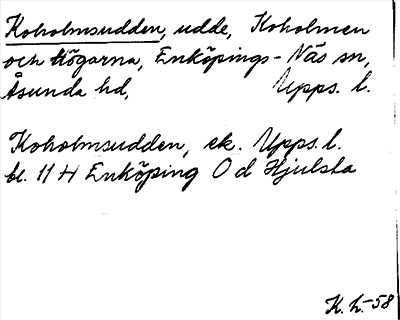 Koholmsudden, udde, Koholmen
och Högarna, Enköpings-Näs sn,
Åsunda hd, Upps. l.
Koholmsudden, ek. Upps. l.
bl. 11 H Enköping O d Hjulsta
K. L. -58